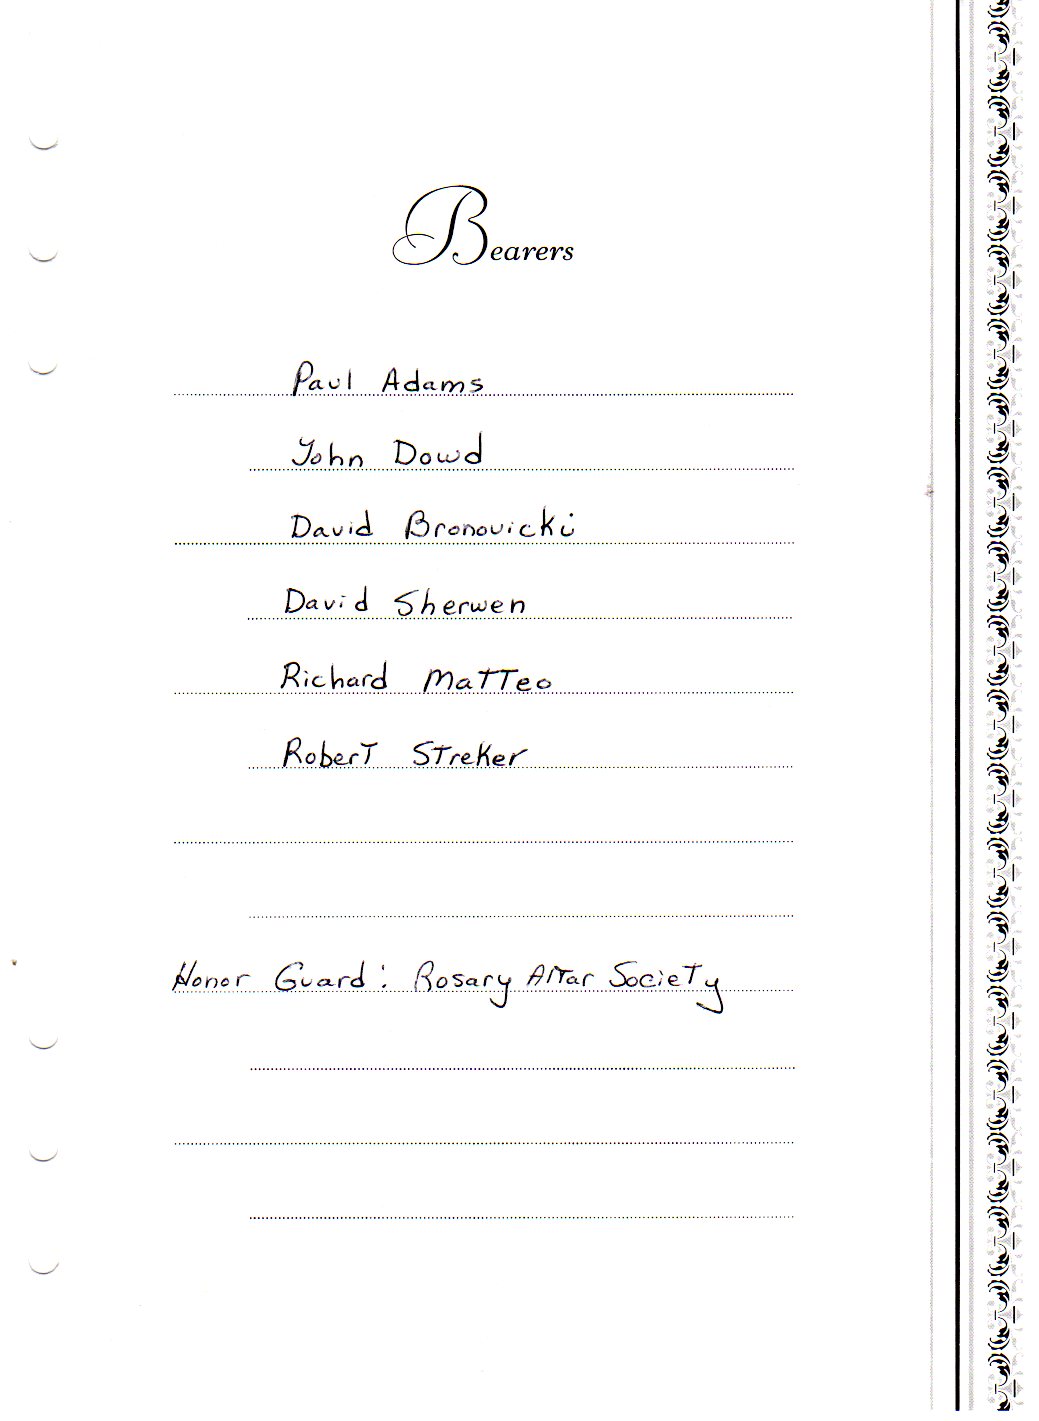 Bearers
Paul Adams
John Dowd
David Bronovicki
David Sherwen
Richard Matteo
Robert Streker
Honor Guard: Rosary Altar Society